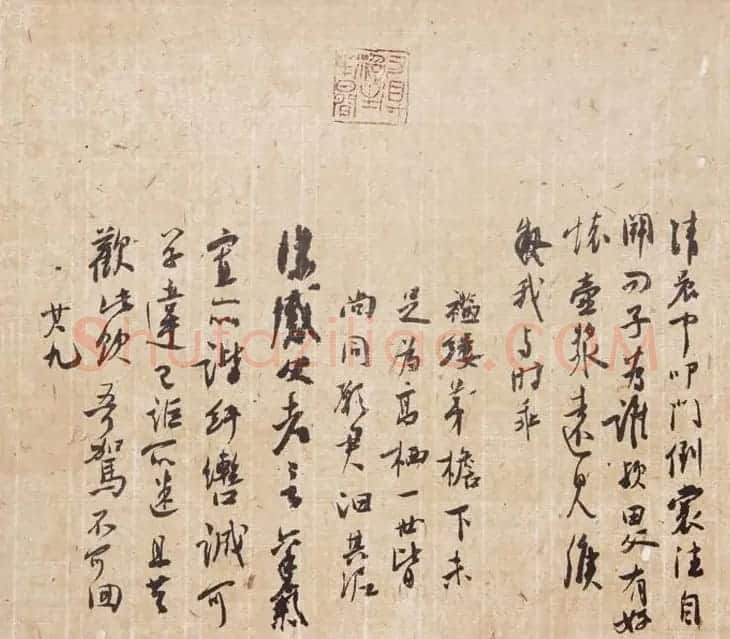 清晨聞叩門倒裳往自
開問子為誰欤田父有好
懷壺漿遠見候
疑我与时乖
襤縷茅檐下未
足為高栖一世皆
尚同願君汩其泥
深感父老言稟氣
寡所諧紆轡誠可
学違己詎非迷且共
歡此飲吾駕不可回
其九
Shufaziliao.COM